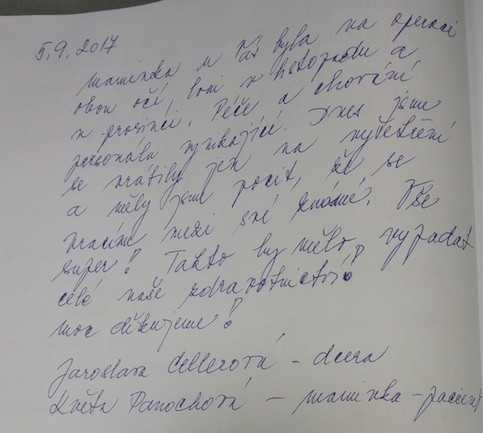 5.9.2017
maminka u Vás byla na operaci
obou očí, loni v listopadu a
v prosinci. Péče a chování
personálu vynikající. Dnes jsme
se vrátily jen na vyšetření
a měly jsme pocit, že se
vracíme mezi své známé. Vše
super! Takto by mělo vypadat
celé naše zdravotnictví!
moc děkujeme!
Jaroslava Cellerová - dcera
Květa Panochová - maminka - pacient